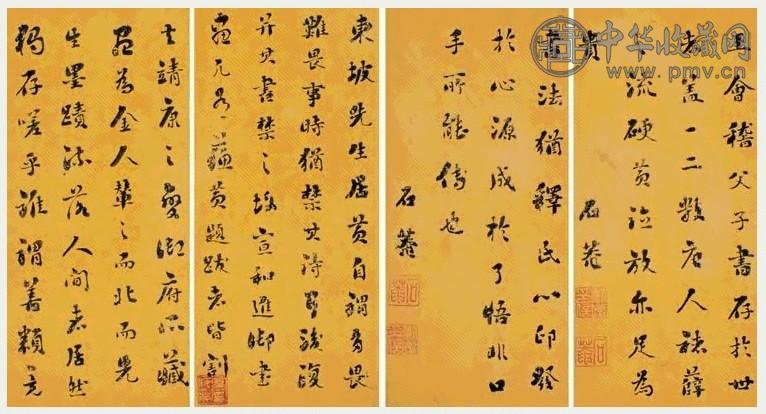 中华收藏网
www.pmv.cn
會稽父子書存於世
者蓋一二數唐人褚薛
下流硬黃臨放亦足為
貴
石菴
書法猶釋氏心印發
於心源成於了悟非口
手所能傳也
石菴
東坡先生居黃自謂多畏
難畏事時猶禁其詩後復
并其書禁之故宣和進御書
畫凡有蘇黃題跋者皆割
去靖康之變御府所藏
盡為金人輦之而北而先
生墨蹟流落人間者居然
獨存嗟乎誰謂善類竟